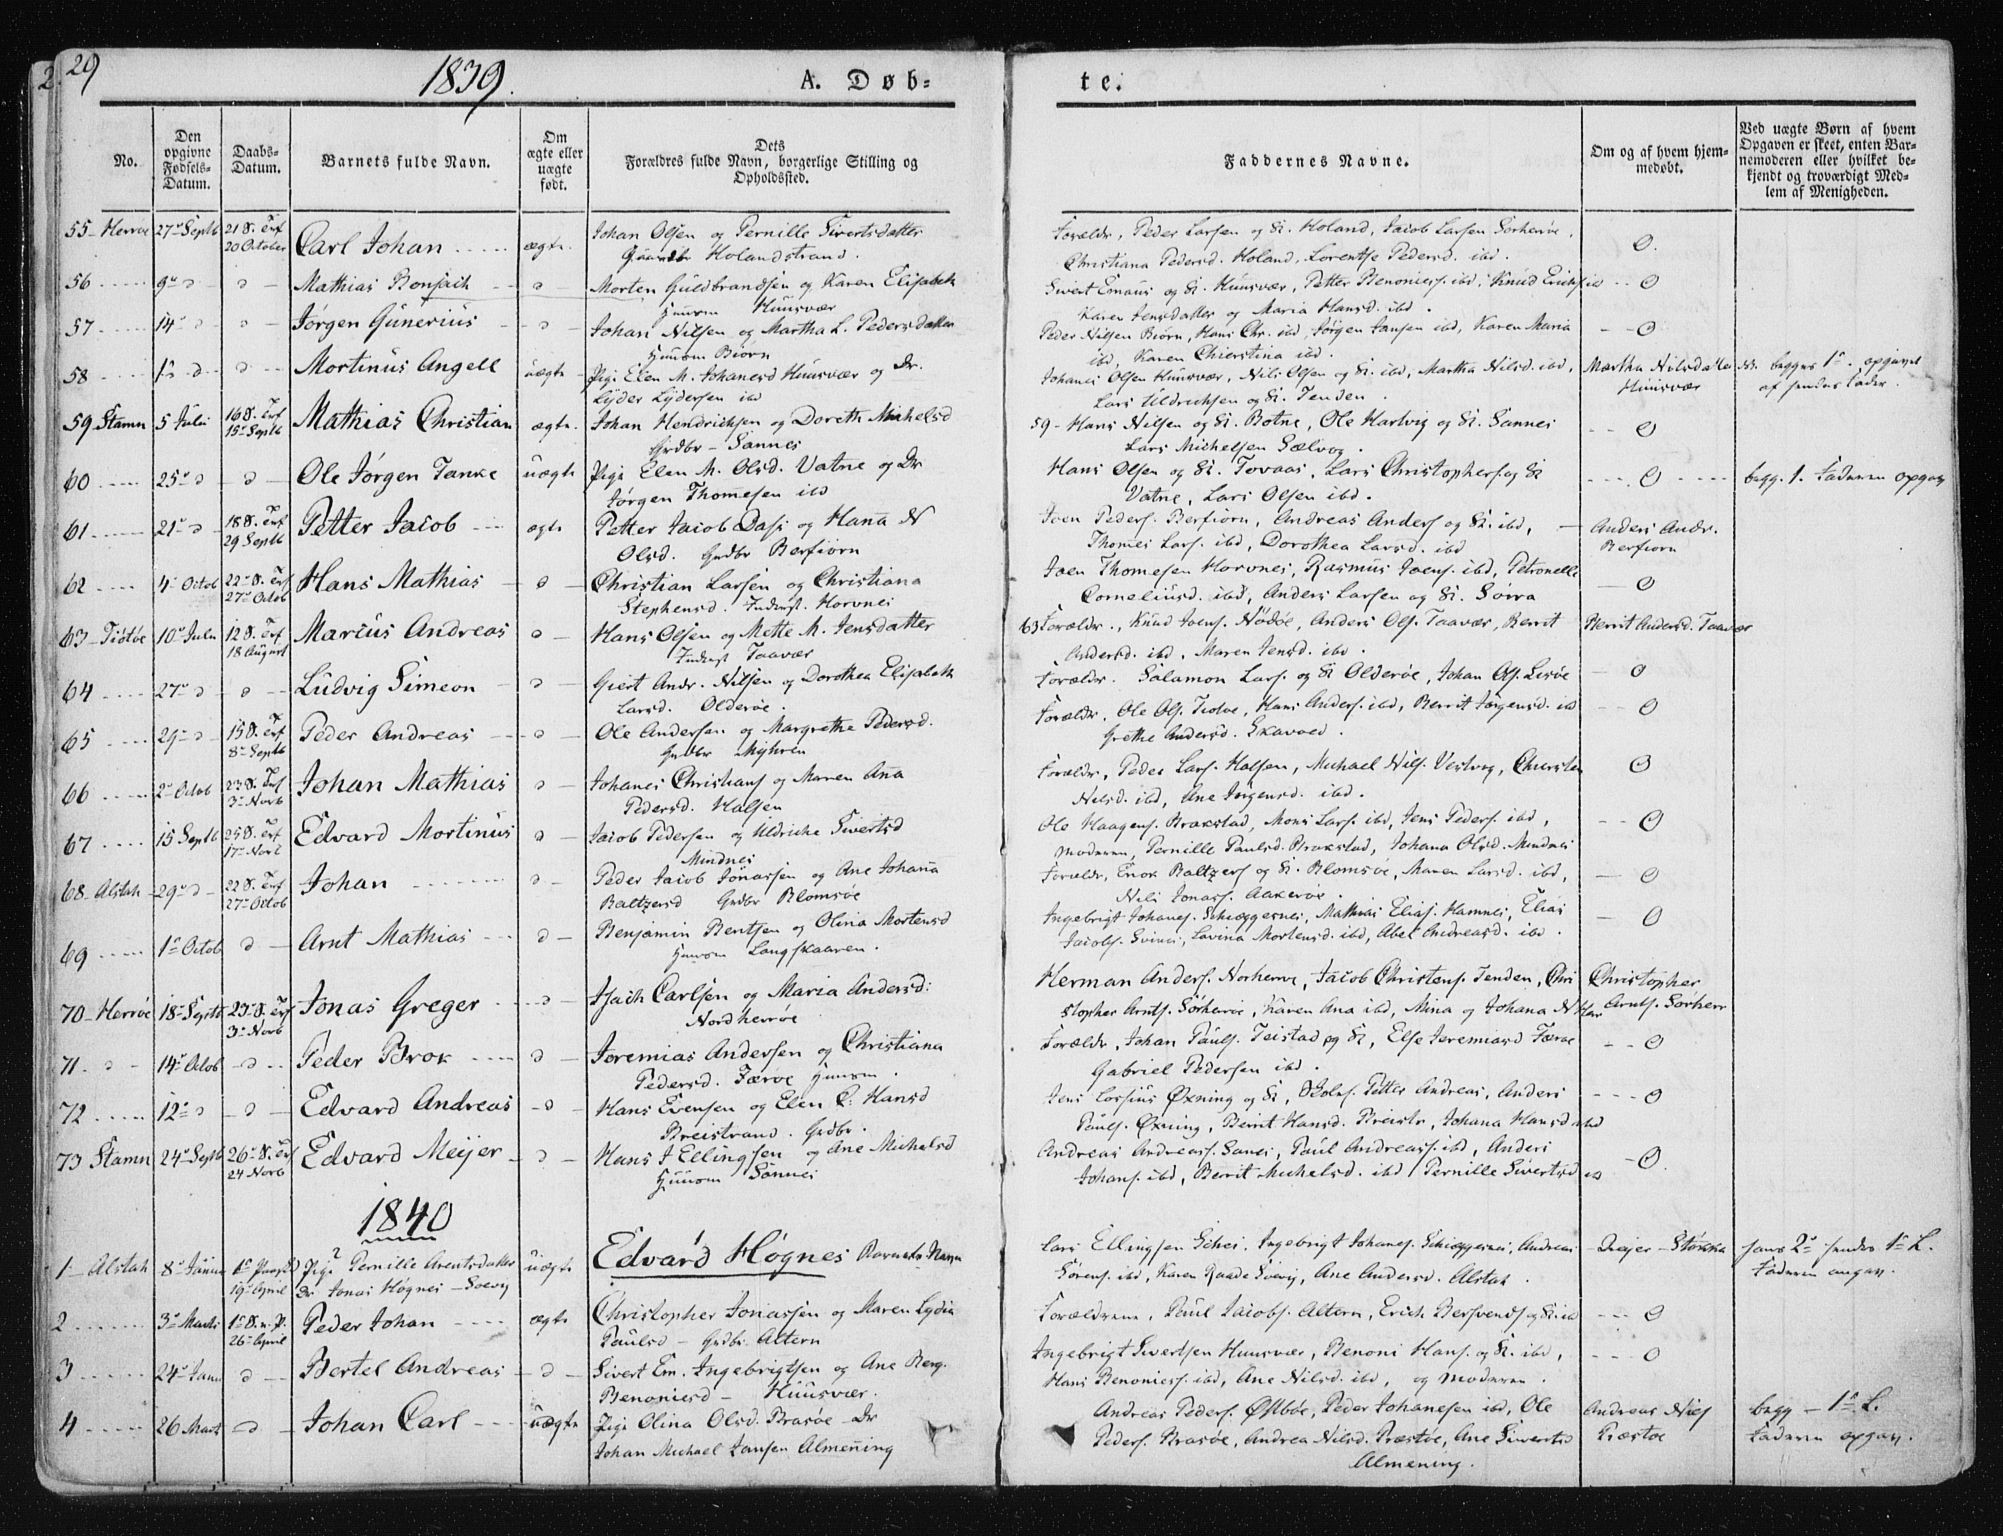 29
1839.
A. Døb-
te.
No.
Den opgivne Fødsels-Datum.
Daabs-Datum.
Barnets fulde Navn.
Om ægte eller uægte født.
Dets Forældres fulde Navn, borgerlige Stilling og Opholdssted.
Faddernes Navne.
Om og af hvem hjem-medøbt.
Ved uægte Børn af hvem Opgaven er skeet, enten Bar-nemoderen eller hvilket be-kjendt og troværdigt Med-lem af Menigheden.
55 - Herrøe 27 Septb 21 S. Trf 20 October Carl Johan ægte Johan Olsen og Pernille Sivertsdatter
Holandstrand.
Forældr, Peder Larsen og K. Holand, Jacob Larsen Sørherrøe,
Christiana Pedersd. Holand, Lorentse Pedersd. ibd. O.
56 9 Mathias Bonsach Morten Guldbrandsen og Karen Elisabeth
Huusm Huusvær
Sivert Emaus og K. Huusvær, Petter Benoniesf. ibd, Knud Erichs ibd O
Karen Jensdatter og Maria Hansd. ibd.
57 14 Jørgen Gunerius Johan Nilsen og Martha L. Pedersdatter
Huusm Biørn
Peder Nilsen Biørn, Hans Chr. ibd, Jørgen Jansen ibd, Karen Maria
ibd, Karen Chierstina ibd. O
58 1 Mortinus Angell uægte Pige Elen M. Johanesd Huusvær og Dr.
Lyder Lydersen ibd
Johanes Olsen Huusvær, Nils Olsen og K. ibd, Martha Nilsd. ibd,
Lars Uldrichsen og K. Tenden. Martha Nilsdatter Huusvær
begges 1, opgivet
af hendes fader.
59 Stamn 5 Juli 16 S. Trf 15 Septb Mathias Christian ægte Johan Hendrichsen og Doreth Michelsd
Grdbr - Sannes
59 - Hans Nilsen og K. Botne, Ole Hartvig og K. Sannes
Lars Michelsen Sælvog. O
60 25 Ole Jørgen Tanke uægte Pige Elen M. Olsd. Vatne og Dr
Jørgen Thomesen ibd
Hans Olsen og K. Tovaas, Lars Christophers. og K
Vatne, Lars Olsen ibd. O begg. 1. Faderen opgav
61 21 18 S. Trf 29 Septb Petter Jacob ægte Petter Jacob Dass og Hana N
Olsd. Grdbr Berfiorn
Joen Peders. Berfiorn, Andreas Anders og K. ibd,
Thomes Lars. ibd, Dorothea Larsd. ibd Anders Andr. Berfiorn
62 4 Octob 22 S. Trf 27 Octob Hans Mathias Christian Larsen og Christiana
Stephensd. Inderst. Horvnes
Joen Thomesen Horvnes, Rasmus Joens. ibd, Petronelle
Corneliusd. ibd, Anders Larsen og K. Søvra O
63 Tiøtøe 10 Julu 12 S. Trf 18 August Marius Andreas Hans Olsen og Mette M. Jensdatter
Inderst Taavær
63 Forældr., Knud Joens. Nødøe, Anders Ols. Taavær, Berrit
Andersd. ibd, Maren Jensd. ibd. Berrit Andersd. Taavær
64 27 Ludvig Simeon Giert Andr. Nilsen og Dorothea Elisabeth
Larsd. Olderøe.
Forældr. Salamon Lars. og K Olderøe, Johan Ols. O
65 29 15 S. Trf 8 Septb Peder Andreas Ole Andersen og Margrethe Pedersd.
Grdbr Myhren
Forældr, Ole Ols. Tiotøe, Hans Anders. ibd, Berrit Jørgensd. ibd
Grethe Andersd. O
66 2 Octob 23 S. Trf 3 Novb Johan Mathias Johanes Christians og Maren Ana
Pedersd. Halsen
Forældr, Peder Lars. Halsen, Michael Nils. Vestvog, Chiersten
Nilsd. ibd, Ane Jørgensd. ibd. O
67 15 Septb 25 S. Trf 17 Novb Edvard Mortinus Jacob Pedersen og Uldriche Sivertsd
Mindnes
Ole Haagens. Brakstad, Mons Lars. ibd, Jens Peders. ibd,
Moderen, Pernille Paulsd. Brakstad, Johana Olsd. Mindnes O
68 - Alstah 29 22 S. Trf 27 Octob Johan Peder Jacob Jonassen og Ane Johana
Baltzersd Grdbr Blomsøe
Forældr, Enok Baltzers og K. Blomsøe, Maren Larsd. ibd,
Nils Jonass. Aakerøe. O
69 1 Octob Arnt Mathias Benjamin Bentsen og Olina Mortensd
Huusm Langskaaren.
Ingebrigt Johanes. Schieggesnes, Mathias Elias. Hamnes, Elias
Jacobs. Svines, Lavina Mortensd. ibd, Abel Andreasd. ibd. O
70 - Herrøe 18 Septb 23 S. Trf 3 Novb Jonas Greger Isach Carlsen og Maria Andersd:
Nordherrøe
Herman Anders. Norherrøe, Jacob Christens. Tenden, Chri
stopher Arnts. Sørherrøe, Karen Ana ibd, Mina og Johana N Her Christopher Arnts. Sørherr
71 14 Octob Peder Brok Jeremias Andersen og Christiana
Pedersd. Færøe Huusm.
Forældr, Johan Pauls. Teistad og K, Else Jeremiasd Færøe
Gabriel Pedersen ibd. O
72 12 Edvard Andreas Hans Evensen og Elen C. Hansd
Breistrand. Grdbr.
Jens Lossius Øxning og K, Petter Andreas, Anders
Pauls. Øxning, Berrit Hansd. Breistr, Johana Hansd ibd O
73 Stamn 24 Septb 26 S. Trf 24 Novb Edvard Meyer Hans J Ellingsen og Ane Michelsd
Huusm Sannes
Andreas Andreass. Sanes, Paul Andreass. ibd, Anders
Johans. ibd, Berrit Michelsd. ibd Pernille Sivertsd ibd O
1840
1 - Alstah 8 Januar 19 April Pige Pernille Arentsdatter
Dr Jonas Høgnes - Soevig uægte Edvard Høgnes Barnets Navn
Lars Ellingsen Schei, Ingebrigt Johanes. Schieggesnes, Andreas
Sørens. ibd, Karen Raade Soevig, Ane Andersd. Alstah. hans 2 hendes 1 L.
Faderen angav.
2 3 Marts 1 S. e. P. 26 April Peder Johan ægte Christopher Jonassen og Maren Lydia
Paulsd - Grdbr. Altern
Forældrene, Paul Jacobs. Altern, Erich Bersvends og K. ibd O
3 24 Janu Bertel Andreas Sivert Em. Ingebrigtsen og Ane Berg.
Benoniesd - Huusvær.
Ingebrigt Sivertsen Huusvær, Benoni Hans. og K. ibd,
Hans Benonies. ibd, Ane Nilsd. ibd, og Moderen. O
4 26 Mart Johan Carl uægte Pige Olina Olsd. Brasøe - Dr
Johan Michael Jansen Almening
Andreas Peders. Østbøe, Peder Johanesen ibd, Ole
Peders. Brasøe, Andrea Nilsd. Præstøe, Ane Sivertsd
Almening. Andreas Nils Præstøe begg - 1 L.
Faderen opgav.